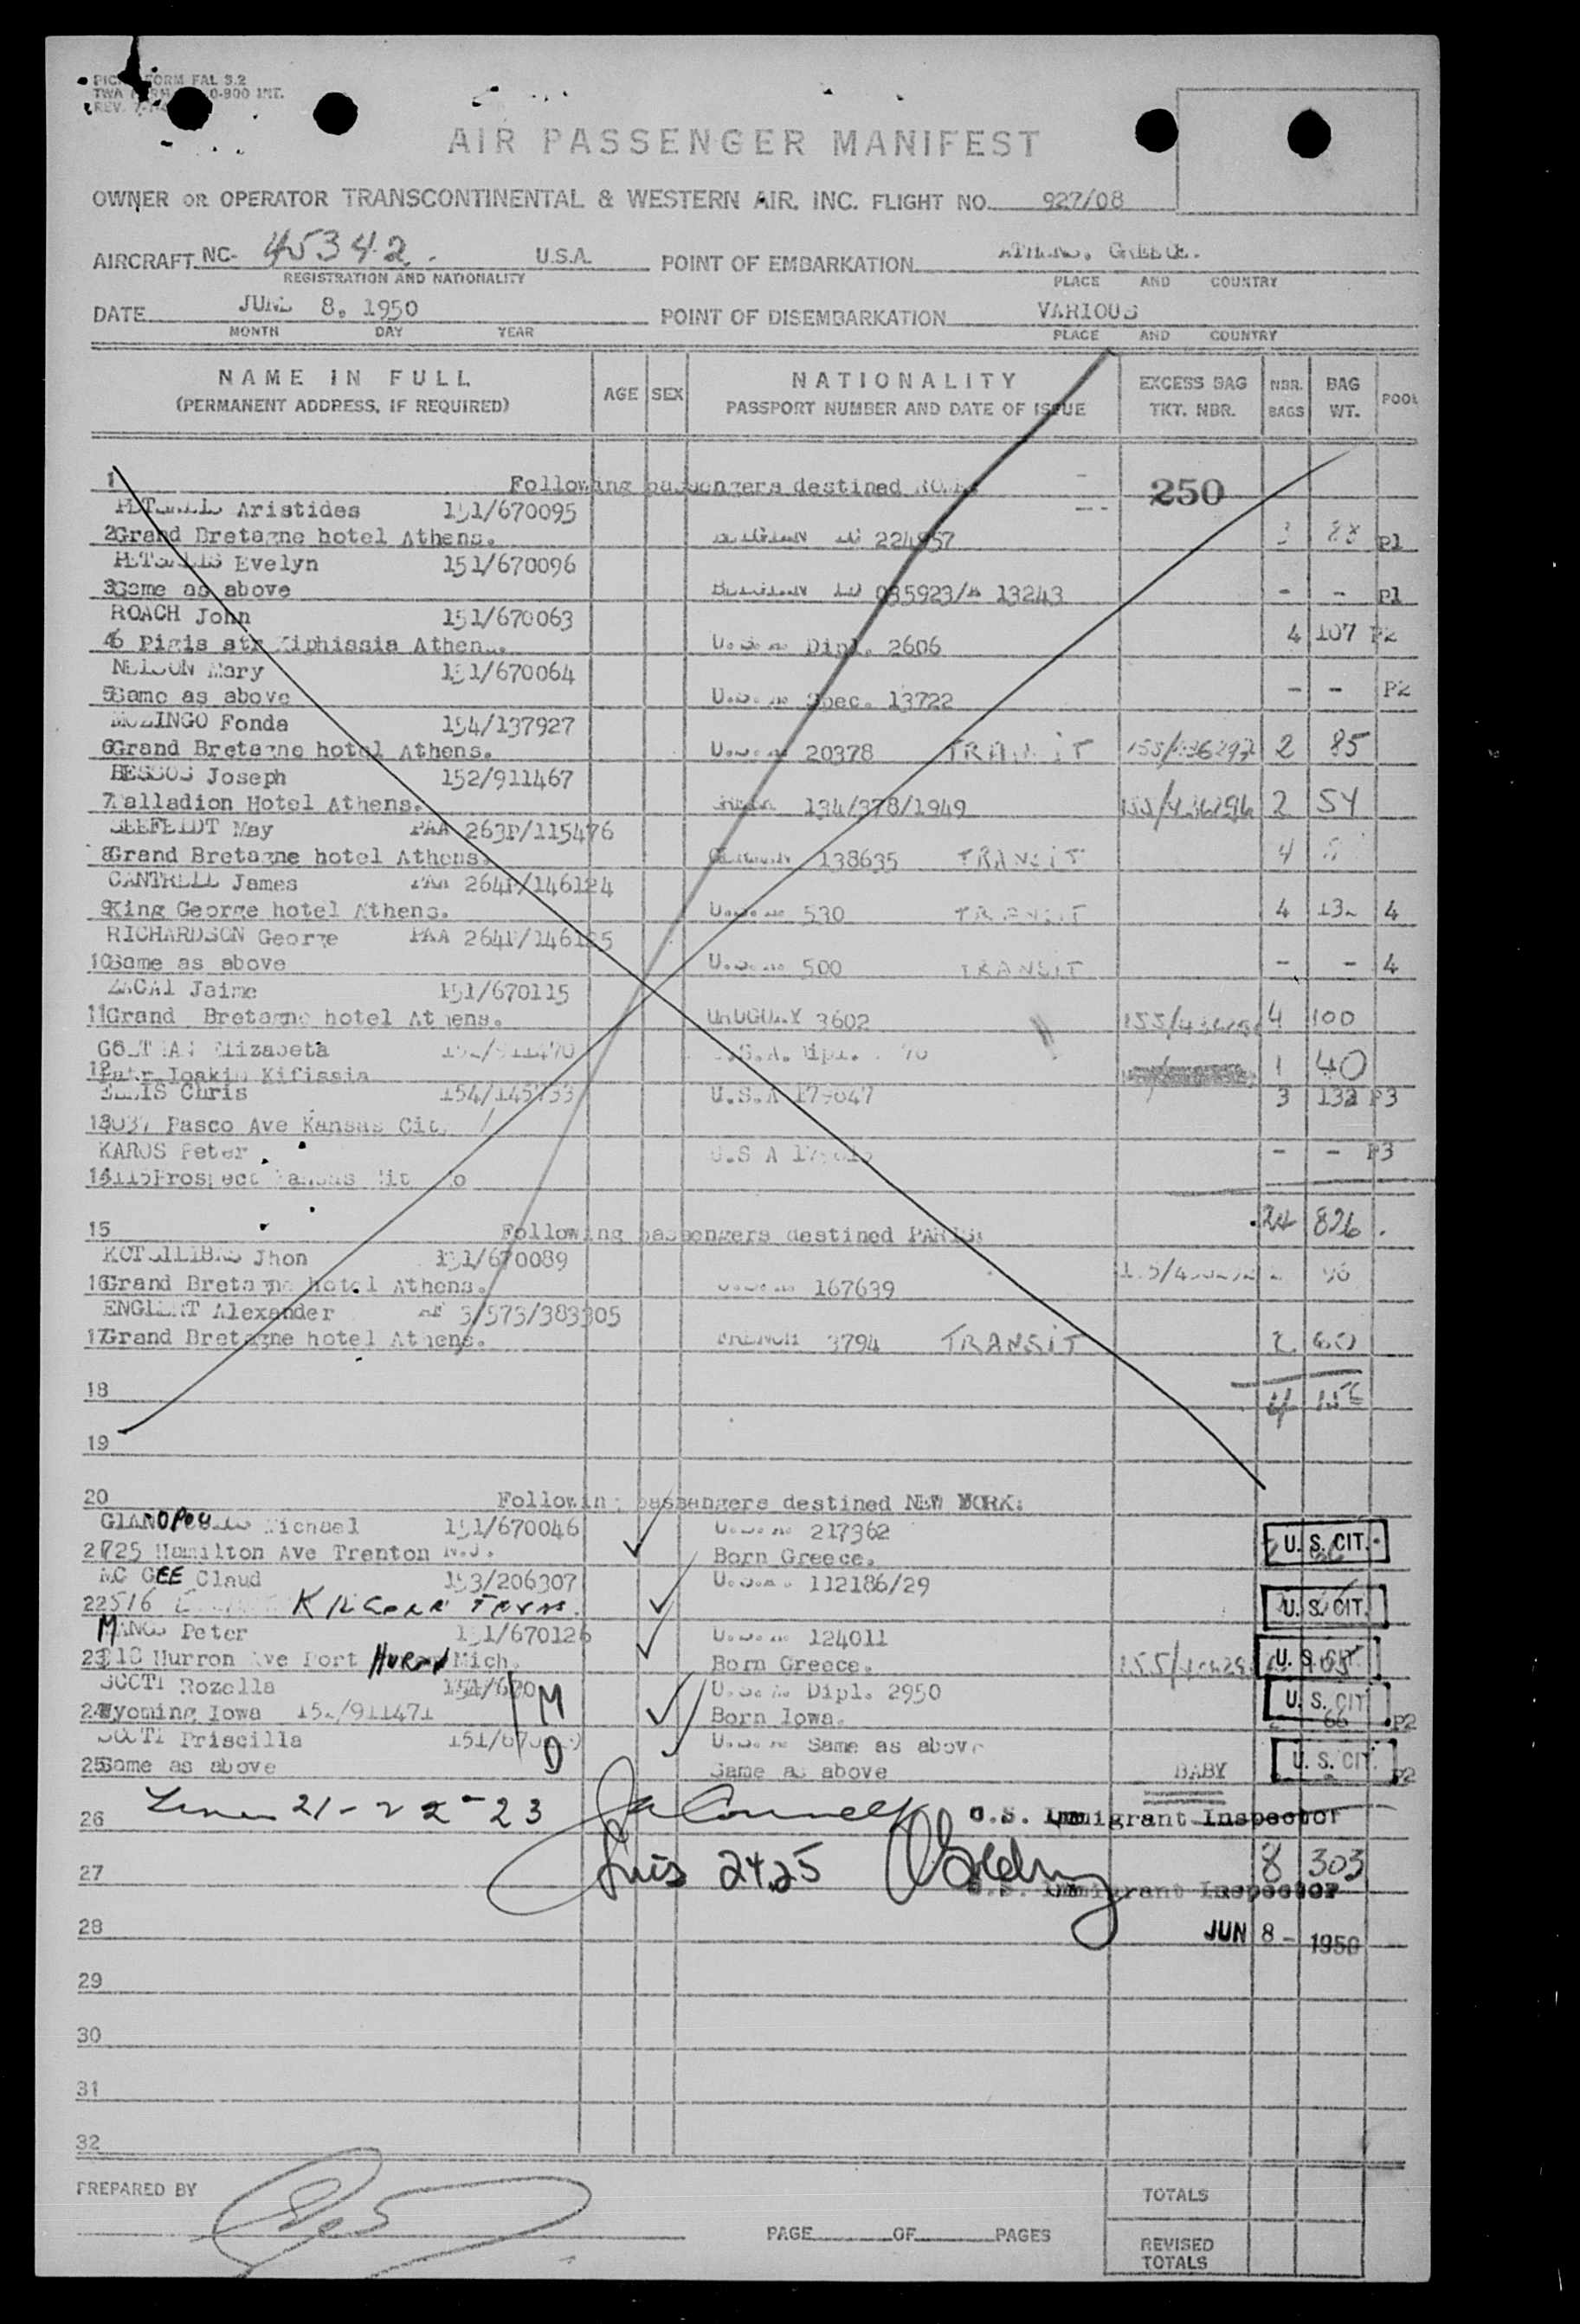 FORM FAL 3.2
TWA 0-800 INT.
REV.
AIR PASSENGER MANIFEST
OWNER OR OPERATOR TRANSCONTINENTAL & WESTERN AIR. INC. FLIGHT NO. 927/08
AIRCRAFT NC- 45342. U.S.A. POINT OF EMBARKATION ATHENS, GREECE.
REGISTRATION AND NATIONALITY PLACE AND COUNTRY
DATE JUNE 8. 1950 POINT OF DISEMBARKATION VARIOUS
MONTH DAY YEAR PLACE AND COUNTRY
NAME IN FULL AGE SEX NATIONALITY EXCESS BAG NBR. BAG POOL
(PERMANENT ADDRESS, IF REQUIRED) PASSPORT NUMBER AND DATE OF ISSUE TKT. NBR. BAGS WT.
1 Following passengers destined ROME: 250
Aristides 151/670095
2 Grand Bretagne hotel Athens. BELGIAN 224957 3 88 P1
Evelyn 151/670096
3 Same as above BELGIAN 035923/A 13243 - - P1
ROACH John 151/670063
4 6 Pigis str Kiphissia Athens. U.S.A. Dipl. 2606 4 107 P2
NELSON Mary 151/670064
5 Same as above U.S.A. Spec. 13722 - - P2
MOZINGO Fonda 154/137927
6 Grand Bretagne hotel Athens. U.S.A. 20378 TRANSIT 2 85
BESSOS Joseph 152/911467
7 Palladion Hotel Athens. GREEK 134/378/1949 2 54
SEEFELDT May PAA 263P/115476
8 Grand Bretagne hotel Athens. 138635 TRANSIT 4
CANTRELL James PAA 264P/146124
9 King George hotel Athens. U.S.A. 530 TRANSIT 4 132 4
RICHARDSON George PAA 264P/146125
10 Same as above U.S.A. 500 TRANSIT - - 4
ZACAI Jaime 151/670115
11 Grand Bretagne hotel Athens. URUGUAY 3602 4 100
Elizabeta 152/911470 U.S.A. Dipl. 1 40
12 Patr Ioakim Kifissia
ELLIS Chris 154/145733 U.S.A 179047 3 132 P3
13 Pasco Ave Kansas City
KAROS Peter U.S A - - P3
14 4115 Prospect Kansas Cit Mo
24 826
15 Following passengers destined PARIS:
Jhon 151/670089
16 Grand Bretagne hotel Athens. U.S.A. 167639 96
ENGLERT Alexander AF 3/573/383305
17 Grand Bretagne hotel Athens. FRENCH 3794 TRANSIT 2 60
18 4
19
20 Following passengers destined NEW YORK:
GIANOPOULOS Michael 151/670046 U.S.A. 217362
21 725 Hamilton Ave Trenton N.J. Born Greece. U. S. CIT.
MC GEE Claud 153/206307 U.S.A. 112186/29
22 516 KILGORE TEXAS. U. S. CIT.
MANOS Peter 151/670126 U.S.A. 124011
23 Hurron Ave Port HURON Mich. Born Greece. U. S. CIT.
SCOTI Rozella 151/670 M U.S.A. Dipl. 2950
24 Wyoming Iowa 152/911471 Born Iowa. U. S. CIT. 66 P2
SCOTI Priscilla 151/670 D U.S.A. Same as above
25 Same as above Same as above BABY U. S. CIT. P2
26 Lines 21-22-23 U.S. Immigrant Inspector
27 Lines 24,25 8 303
U.S. Immigrant Inspector
28 JUN 8 - 1950
29
30
31
32
PREPARED BY TOTALS
PAGE OF PAGES REVISED
TOTALS